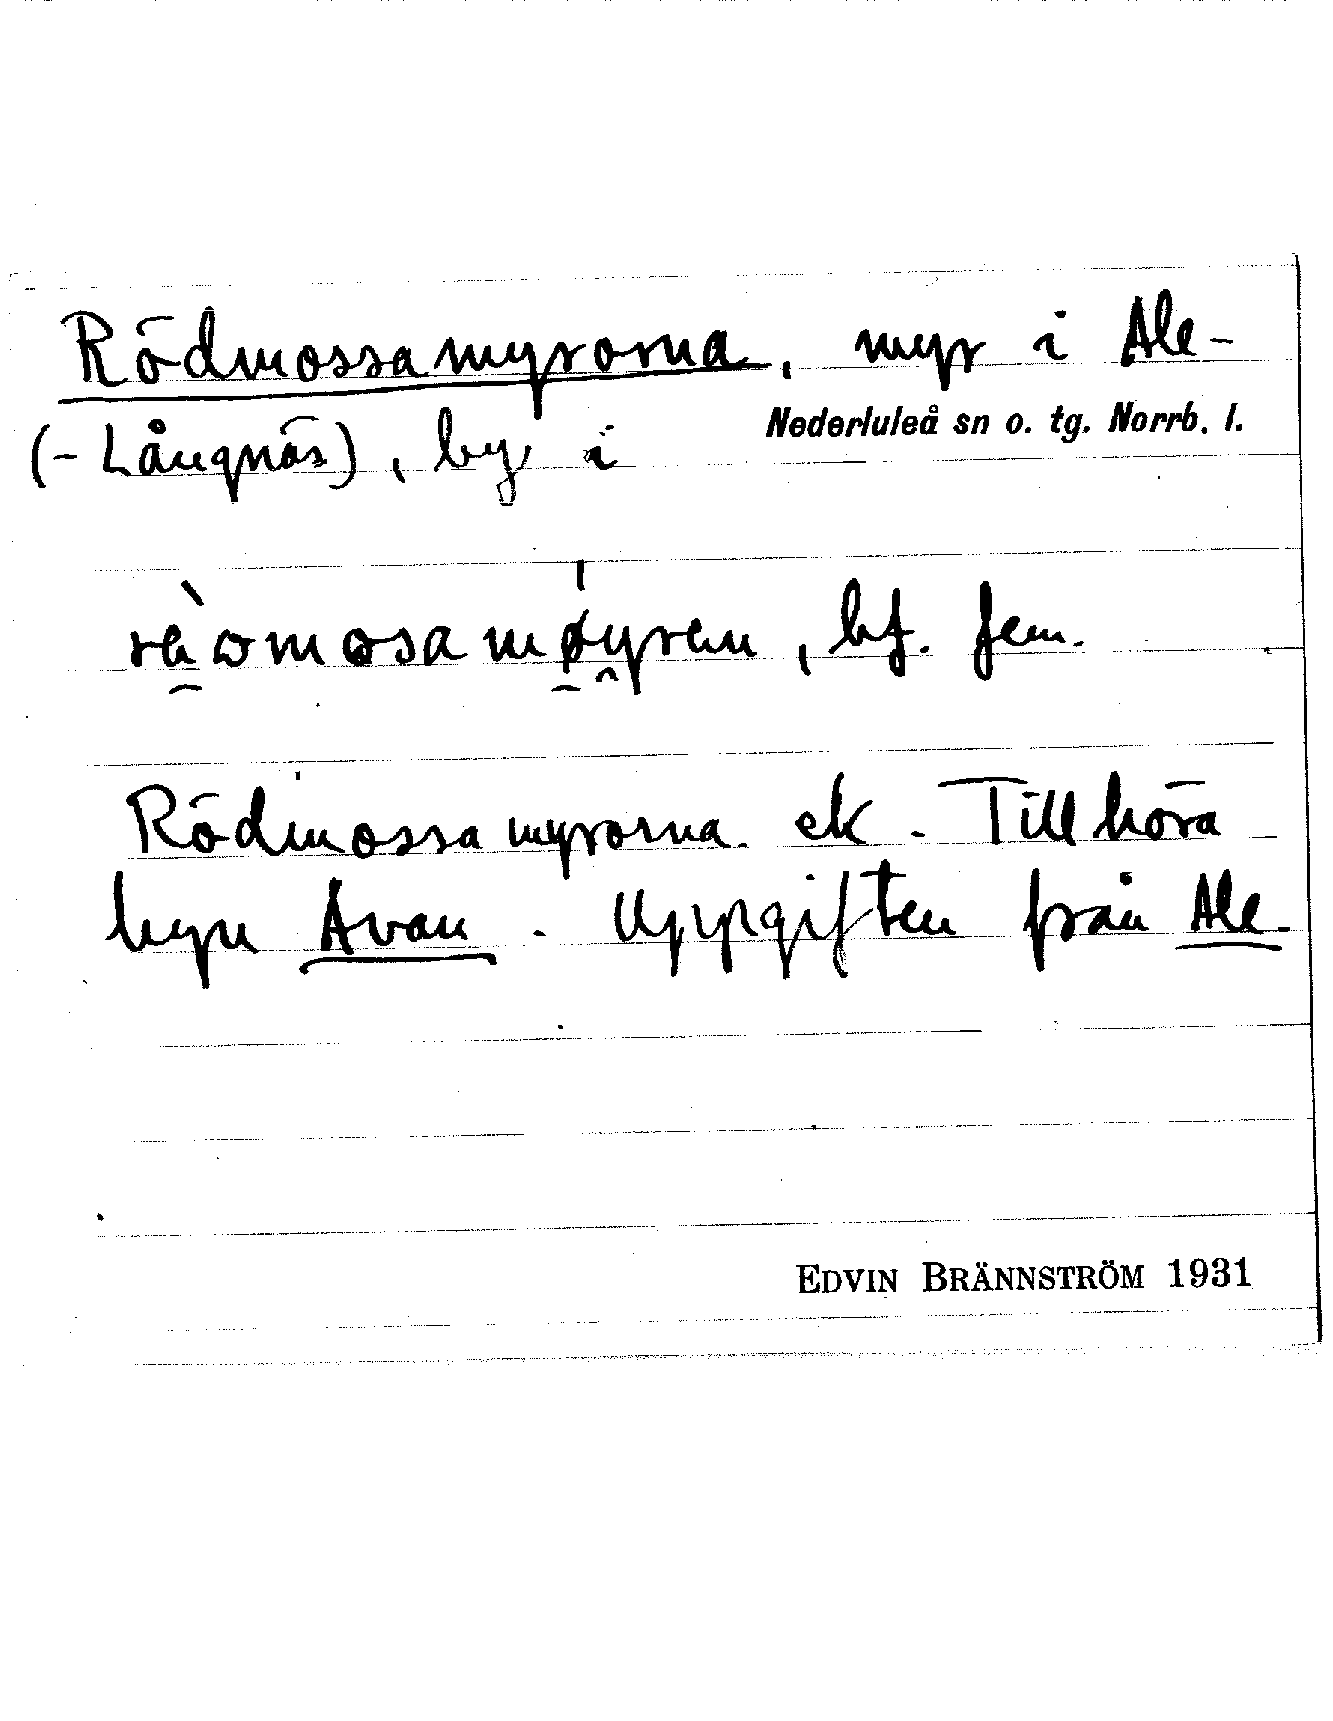 Rödmossamyrorna, myr i Ale-
(-Långnäs), by i Nederluleå sn o. tg. Norrb. l.
, bf. fem.
Rödmossamyrorna. ek. Tillhöra
byn Avan. Uppgiften från Ale.
EDVIN BRÄNNSTRÖM 1931